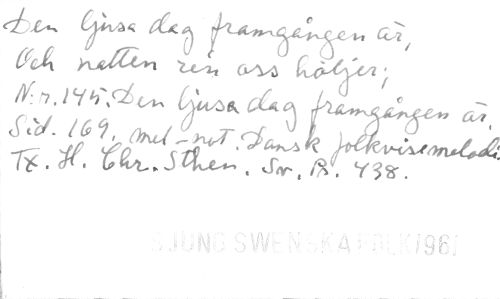 Den ljusa dag framgången är,
Och natten ren oss höljer;
N:r. 145. Den ljusa dag framgången är.
Sid. 169. mel-not. Dansk folkvisemelodi.
Tx. H. Chr. Sthen. Sv. Ps. 438.
SJUNG SWENSKA FOLK 1961